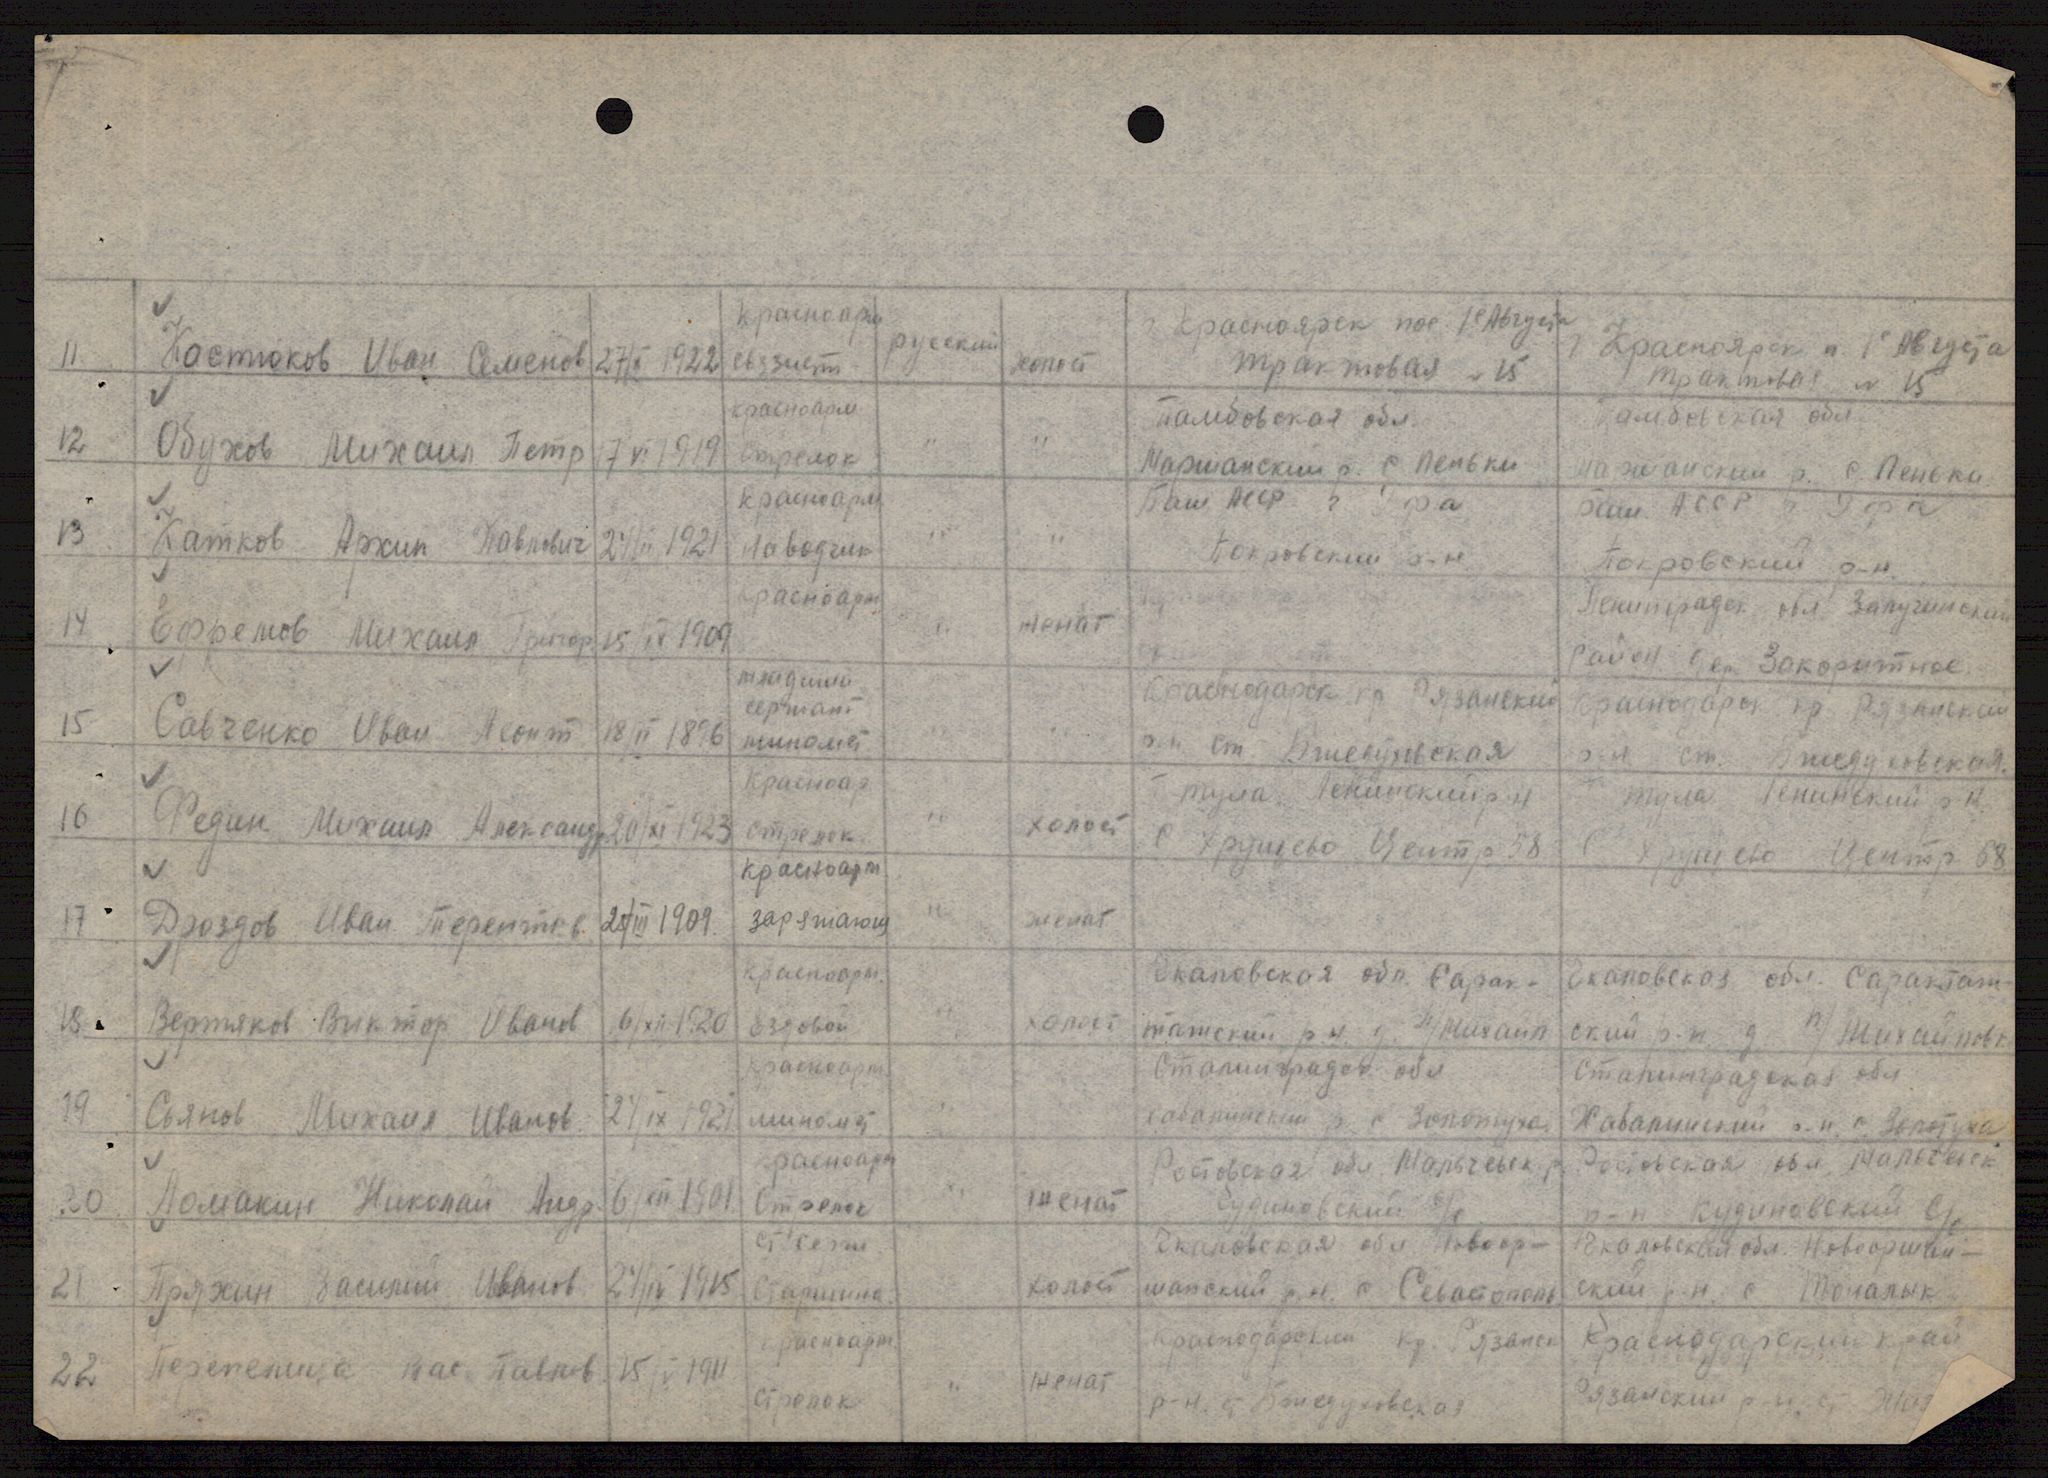 11 Костюков Иван Семенов 27/X 1922 Красноарм связист русский холост г Красноярск пос. 1е Августа Трактовая № 15 г Красноярск п. 1е Августа Трактовая № 15
12 Обухов Михаил Петр 17 VI 1919 красноарм стрелок " " Тамбовская обл. Маршанский р. с Пеньки Тамбовская обл. Маршанский р. с Пеньки
13 Катков Архип Павлович 24/II 1921 Красноарм наводчик " " Баш АССР г Уфа Покровский р-н Баш. АССР г Уфа Покровский р-н.
14 Ефремов Михаил Григор 15/IX 1909 красноарм " женат Ленинградск обл Залучинский район дер Закоритное
15 Савченко Иван Леонт 18/II 1896 младший сержант миномет " " Краснодарск кр Рязанский р-н ст. Бжедуховская Краснодарск кр. Рязанский р-н ст. Бжедуховская.
16 Федин Михаил Александр 20/XI 1923 Красноар стрелок " холост Г Тула Ленинский р-н С Хрущево Центр 58 Г Тула Ленинский р-н С Хрущево Центр 68
17 Дроздов Иван Терентьев. 28/III 1909. красноарм заряжающ " женат
18. Вертяков Виктор Иванов 6/XII 1920 красноарм. ездовой " холост Чкаловская обл. Сарак- ташский р-н. д. Н/Михайл Чкаловская обл. Саракташ- ский р-н. д. Н/Михайловк
19 Сьянов Михаил Иванов. 24/IX 1921 красноарм. миномет " Сталинградск обл с Золотуха. Сталинградская обл Хабалинский р-н. с. Золотуха
20 Ломакин Николай Андр 6/XII 1901 Красноарм Стрелок " женат Ростовская обл Мальчевск р Кудиновский С/с Ростовская обл. Мальчевск р-н Кудиновский С/с
21 Пряхин Василий Иванов 24/IV 1915 Ст серж. Старшина. холост Чкаловская обл Новоор- шанский р.н. с Севастополь Чкаловская обл. Новооршан- ский р-н. с
22 Перепелица Вас. Павлов. 15/V 1911 красноарм. стрелок " женат Краснодарский кр. Рязанск р-н. ст Бжедуховская Краснодарский край Рязанский р-н. ст.